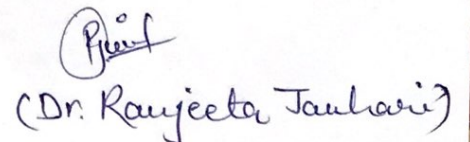 (Dr. Ranjeeta Jauhari)